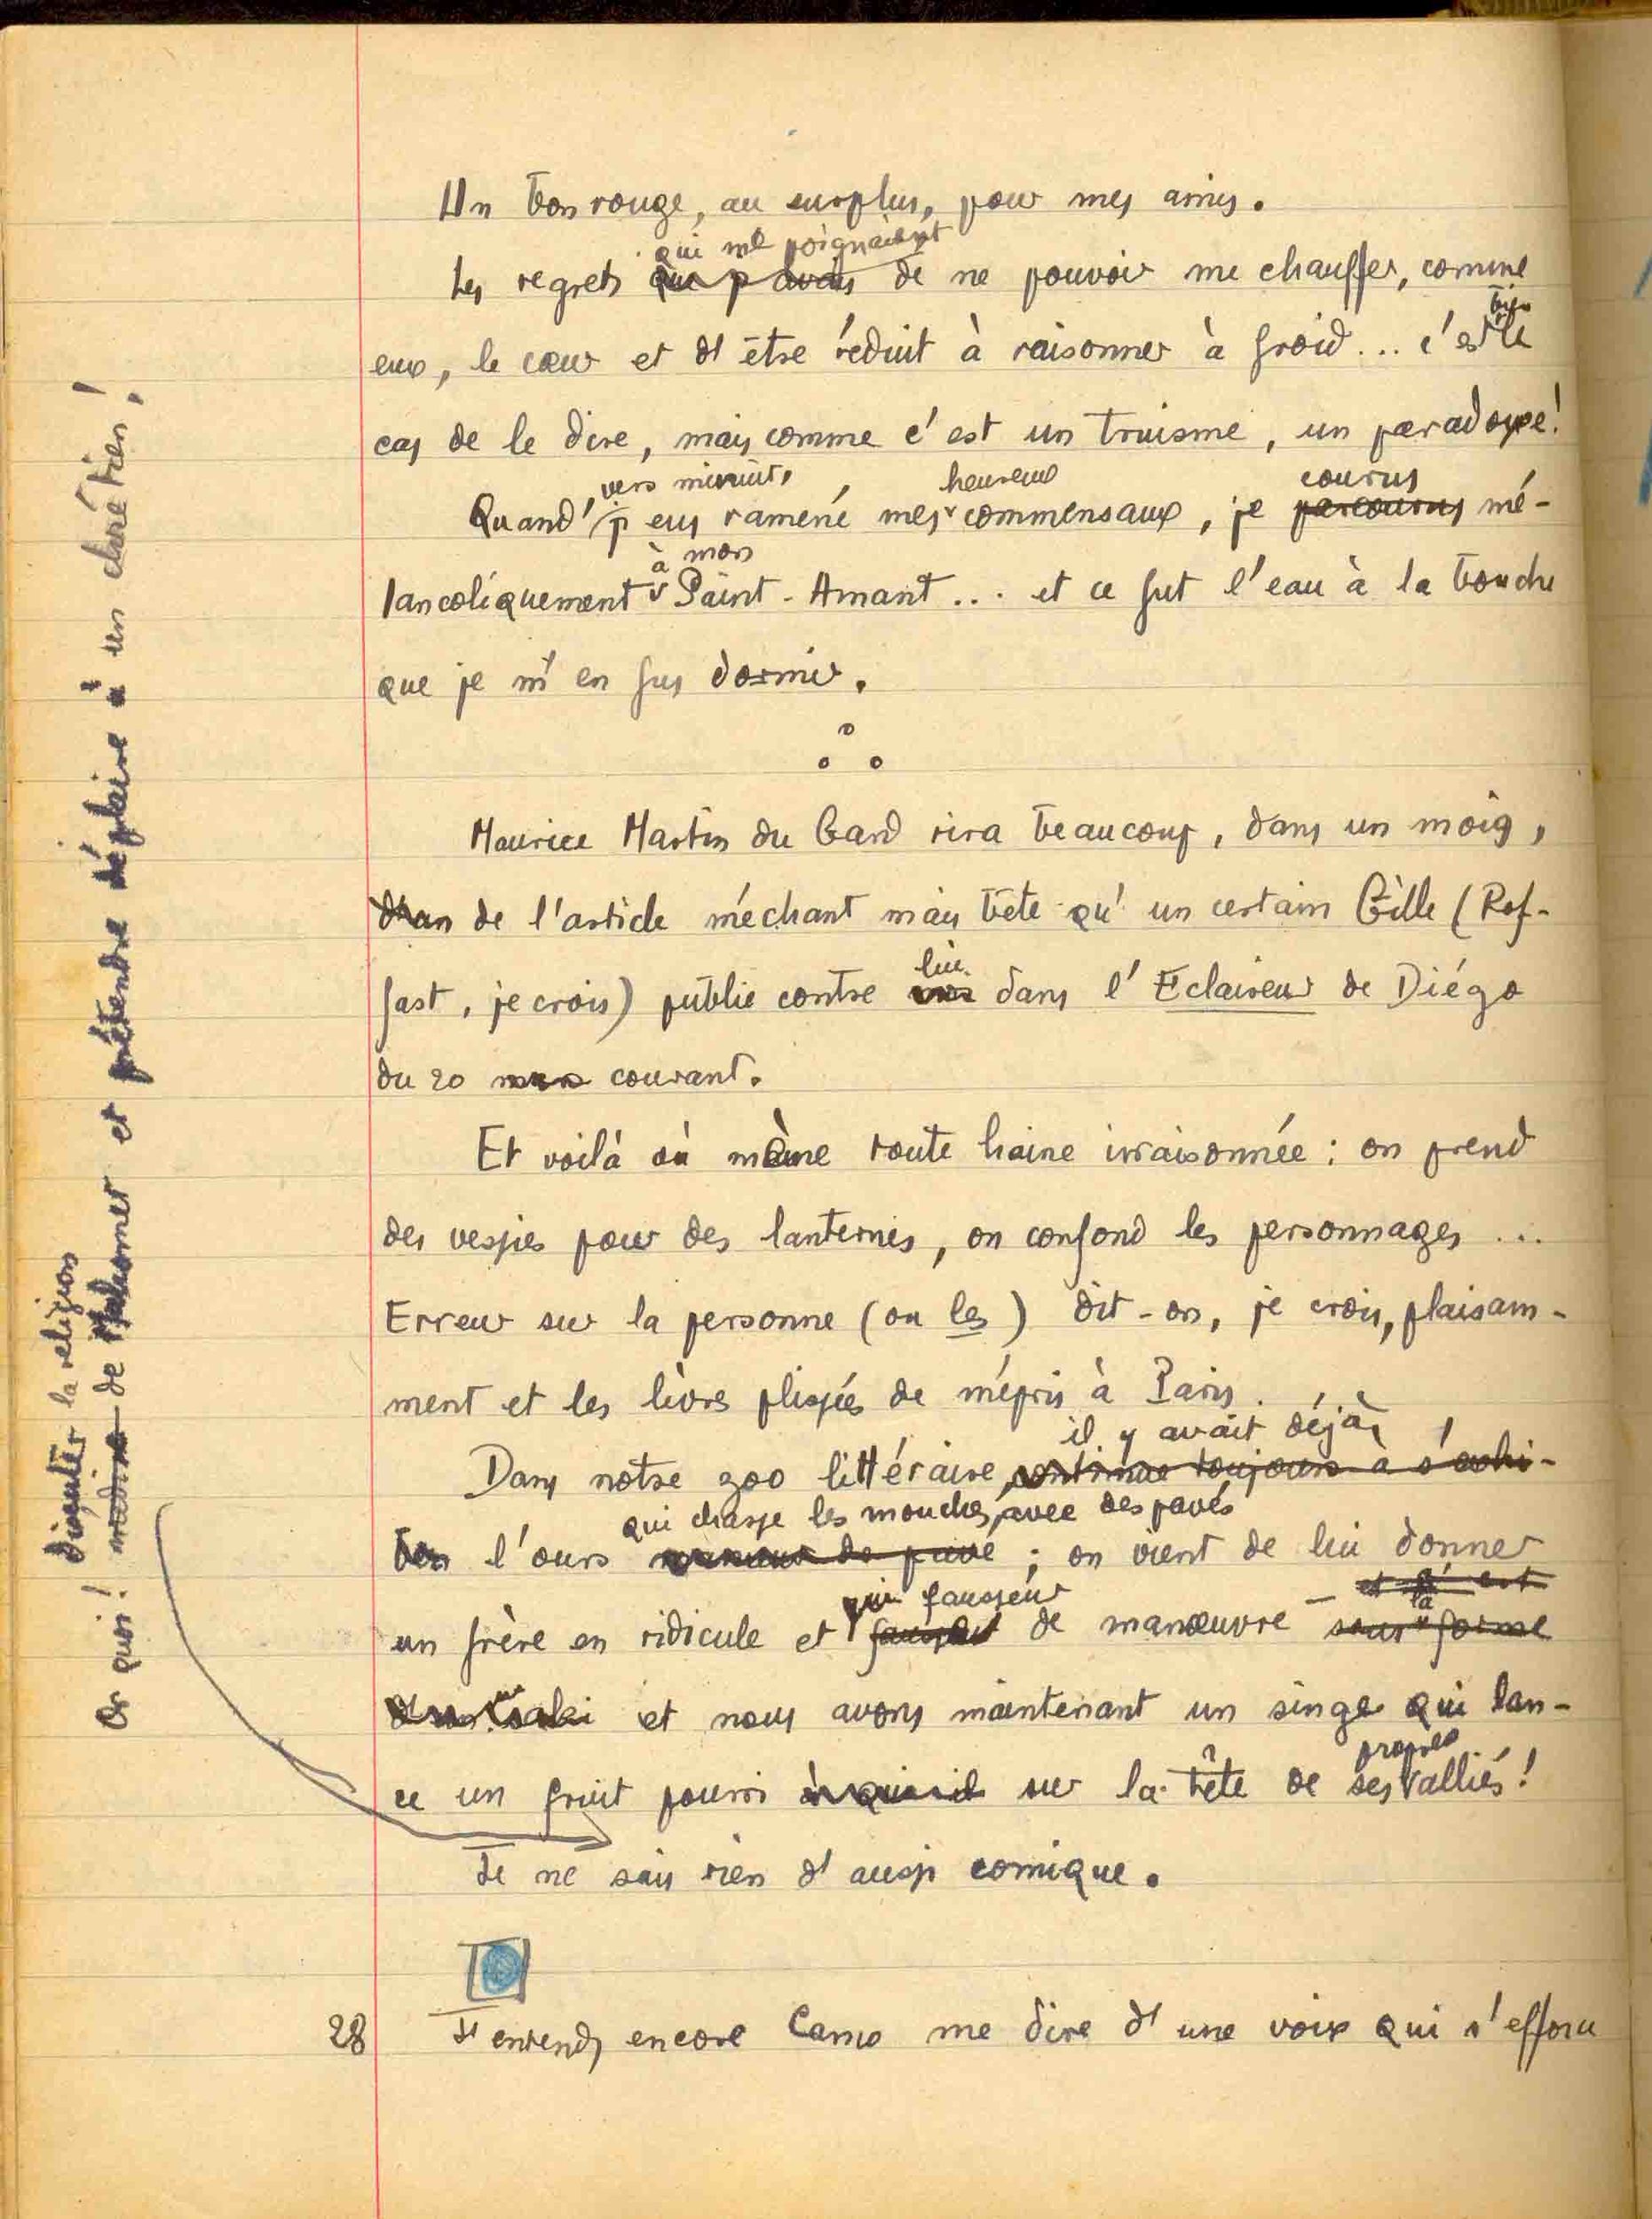 Un bon rouge, au surplus, pour mes amis.
qui me poignaient
Les regrets que j'avais de ne pouvoir me chauffer, comme
bien
eux, le cœur et d'être réduit à raisonner à froid... c'est le
cas de le dire, mais comme c'est un truisme, un paradoxe!
vers minuit, heureux courus
Quand j'eus ramené mes commensaux, je parcourus mé-
à mon
lancoliquement Saint-Amant... et ce fut l'eau à la bouche
que je m'en fus dormir.
Maurice Martin du Gard rira beaucoup, dans un mois,
d'un de l'article méchant mais bête qu'un certain Gille (Rof-
lui
fast, je crois) publie contre dans l'Eclaireur de Diégo
du 20 mars courant.
Et voilà où mène toute haine irraisonnée : on prend
des vessies pour des lanternes, on confond les personnages ...
Erreur sur la personne (ou les) dit-on, je crois, plaisam-
ment et les lèvres plissées de mépris à Paris.
il y avait déjà
Dans notre zoo littéraire, continue toujours à s'exhi-
qui chasse les mouches avec des pavés
ber l'ours ; on vient de lui donner
qui fausseur et c'est
un frère en ridicule et de manœuvre – sous la forme
et nous avons maintenant un singe qui lan-
propres
ce un fruit pourri sur la tête de ses alliés!
Je ne sais rien d'aussi comique.
28 J'entends encore Camo me dire d'une voix qui s'efforce
Or quoi! médire de Mahomet et prétendre déplaire à un chrétien!
discuter la religion